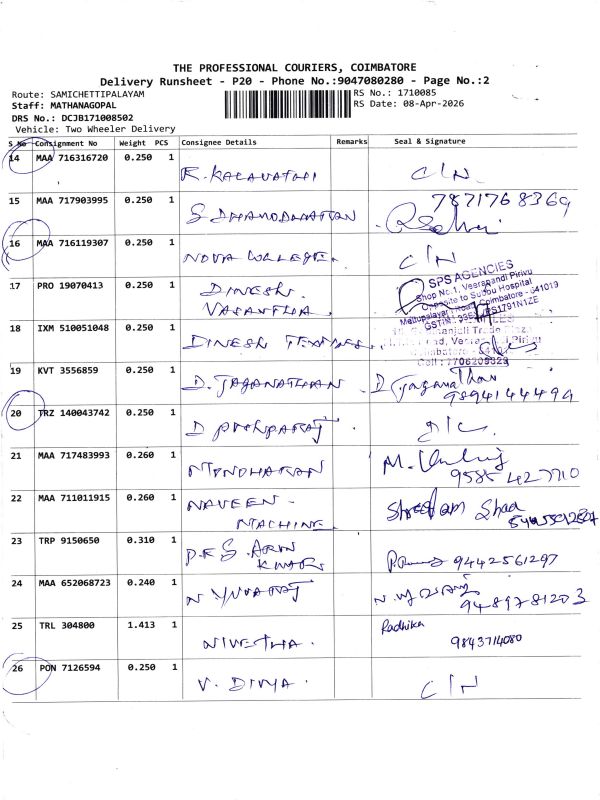 THE PROFESSIONAL COURIERS, COIMBATORE
Delivery Runsheet - P20 - Phone No.:9047080280 - Page No.:2
Route: SAMICHETTIPALAYAM
RS No.: 1710085
Staff: MATHANAGOPAL
RS Date: 08-Apr-2026
DRS No.: DCJB171008502
Vehicle: Two Wheeler Delivery
S No Consignment No Weight PCS Consignee Details Remarks Seal & Signature
14 MAA 716316720 0.250 1 K. KALAVATHI C/N
15 MAA 717903995 0.250 1 S DHAMODHARAN 7871768369
16 MAA 716119307 0.250 1 NOVA COLLEGE. C/N
17 PRO 19070413 0.250 1 DINESH.
VASANTHA.
SPS AGENCIES
Shop No.1, Veerapandi Pirivu
Opposite to Hospital
Mettupalayam Road, Coimbatore - 641019
18 IXM 510051048 0.250 1 DINESH TEXTILES.
19 KVT 3556859 0.250 1 D. JAGANATHAN D. Jaganathan
9894144499
20 TRZ 140043742 0.250 1 D
21 MAA 717483993 0.260 1 M.
9585427710
22 MAA 711011915 0.260 1 NAVEEN
MACHINE.
23 TRP 9150650 0.310 1 P.K.S. ARUN
KUMAR 9442561297
24 MAA 652068723 0.240 1 N YUVARAJ
9489781203
25 TRL 304800 1.413 1 NIVETHA. Radhika
9843714080
26 PON 7126594 0.250 1 V. DIVYA. C/N